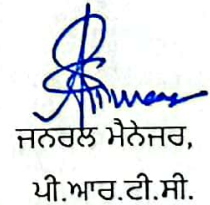 ਜਨਰਲ ਮੈਨੇਜਰ,
ਪੀ.ਆਰ.ਟੀ.ਸੀ.